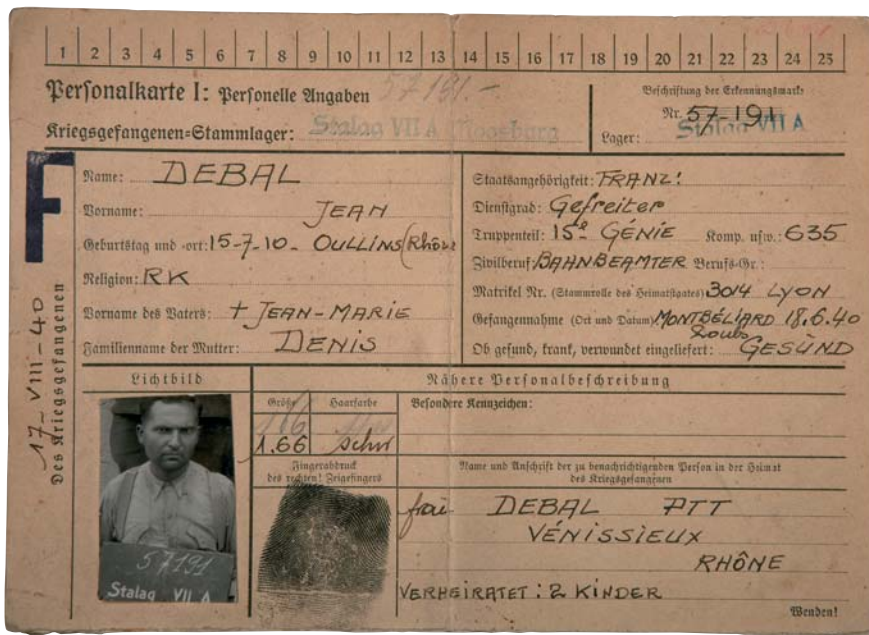 1 2 3 4 5 6 7 8 9 10 11 12 13 14 15 16 17 18 19 20 21 22 23 24 25
Personalkarte I: Personelle Angaben 57191.-
Kriegsgefangenen=Stammlager: Stalag VII A Moosburg
Beschriftung der Erkennungsmarke
Nr. 57-191
Lager: Stalag VII A
F
17-VIII-40
Des Kriegsgefangenen
Name: DEBAL
Vorname: JEAN
Geburtstag und -ort: 15-7-10 - OULLINS (Rhône
Religion: RK
Vorname des Vaters: + JEAN-MARIE
Familienname der Mutter: DENIS
Staatsangehörigkeit: FRANZ:
Dienstgrad: Gefreiter
Truppenteil: 15e GÉNIE Komp. usw.: 635
Zivilberuf: BAHNBEAMTER Berufs-Gr.:
Matrikel Nr. (Stammrolle des Heimatstaates) 3014 LYON
Gefangennahme (Ort und Datum) MONTBÉLIARD 18.6.40
Doubs
Ob gesund, krank, verwundet eingeliefert: GESÜND
Lichtbild
57191
Stalag VII A
Nähere Personalbeschreibung
Größe Haarfarbe Besondere Kennzeichen:
1.66 schw
Fingerabdruck
des rechten! Zeigefingers
Name und Anschrift der zu benachrichtigenden Person in der Heimat
des Kriegsgefangenen
DEBAL PTT
VÉNISSIEUX
RHÔNE
VERHEIRATET: 2 KINDER
Wenden!